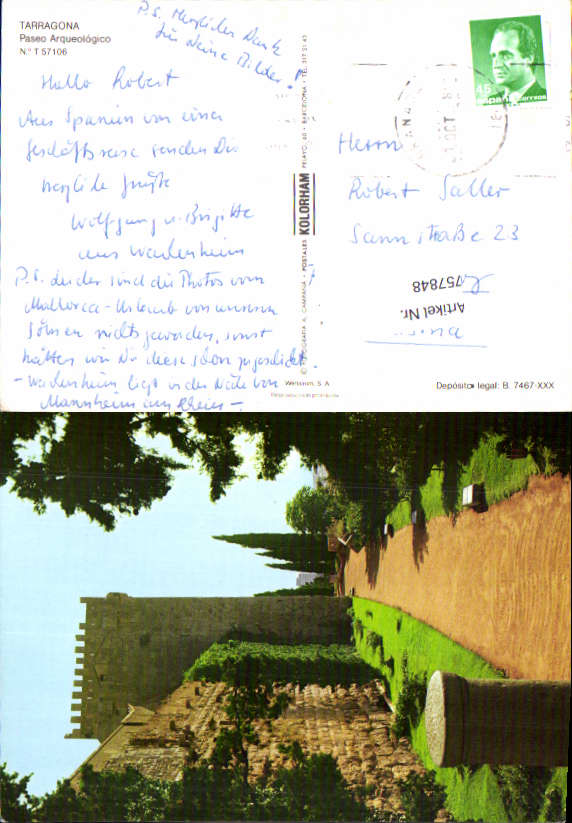 TARRAGONA
Paseo Arqueológico
N.º T 57106
P.S. Herzlichen Dank
für Deine Bilder!
Hallo Robert
Aus Spanien von einer
Geschäftsreise senden Dir
herzliche Grüße
Wolfgang u. Brigitte
aus Wachenheim
P.S. Leider sind die Photos vom
Mallorca-Urlaub von unseren
Söhnen nichts geworden, sonst
hätten wir Dir diese schon zugeschickt
- Wachenheim liegt in der Nähe von
Mannheim am Rhein -
FOTOGRAFIA A. CAMPAÑA - POSTALES KOLORHAM PELAYO, 60 - BARCELONA - TEL. 317 21 43
45
España
correos
OCT
Herrn
Robert Saller
Sannstraße 23
Artikel Nr.
757848
Depósito legal: B. 7467-XXX